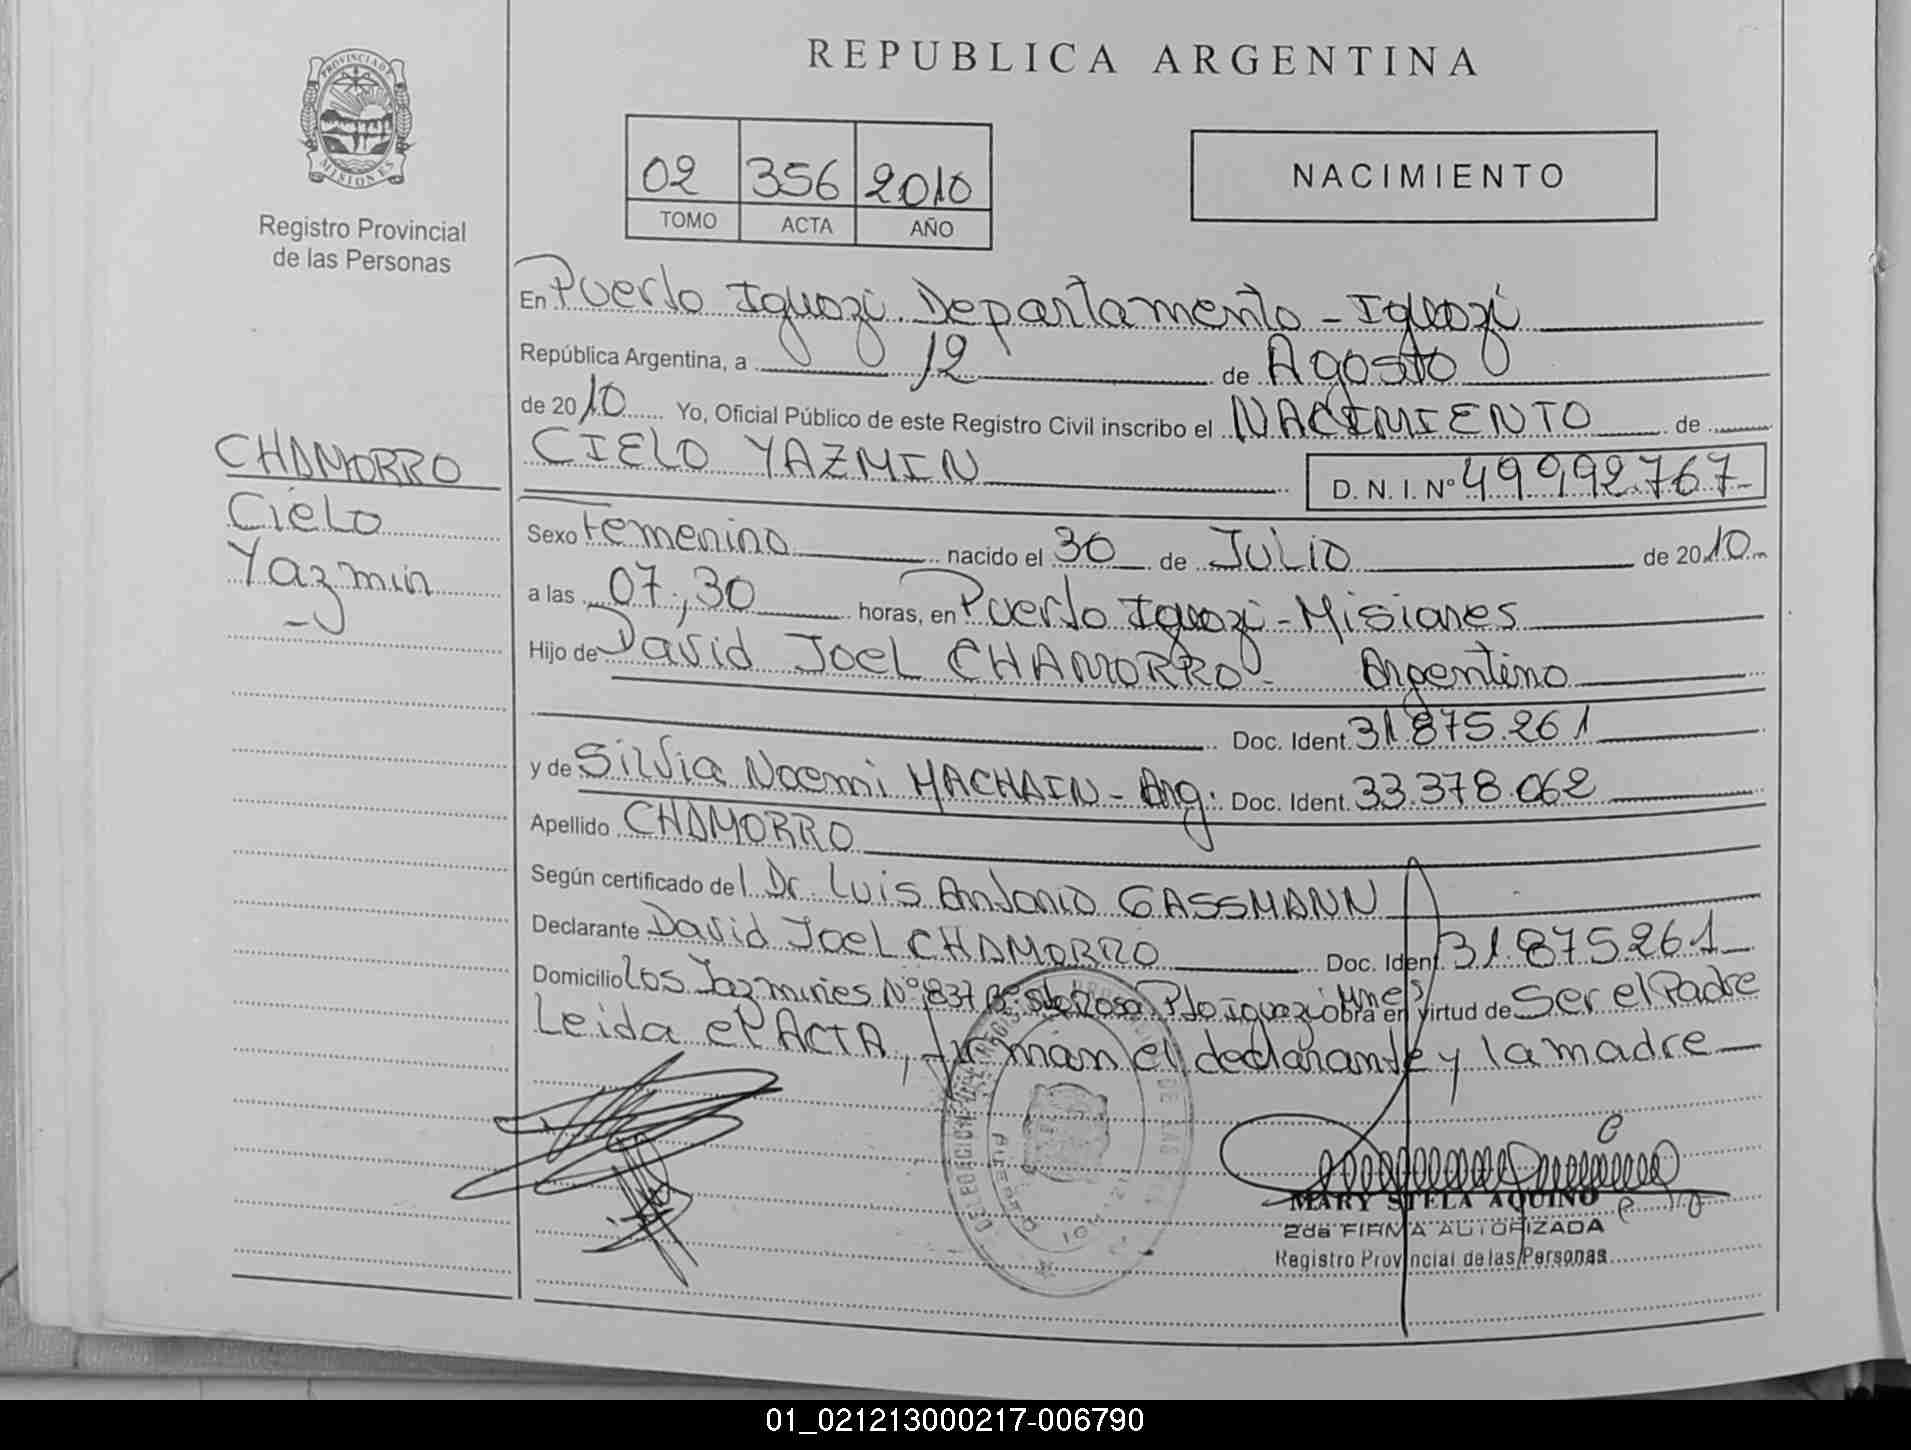 REPUBLICA ARGENTINA
PROVINCIA DE
MISIONES
Registro Provincial
de las Personas
02 356 2010
TOMO ACTA AÑO
NACIMIENTO
En Puerto Iguazú Departamento - Iguazú
República Argentina, a 12 de Agosto
de 2010 Yo, Oficial Público de este Registro Civil inscribo el NACIMIENTO de
CHAMORRO
Cielo
Yazmin
CIELO YAZMIN D. N. I. Nº 49.992.767-
Sexo Femenino nacido el 30 de JULIO de 2010
a las 07,30 horas, en Puerto Iguazú - Misiones
Hijo de David Joel CHAMORRO - Argentino
Doc. Ident. 31.875.261
y de Silvia Noemi MACHAIN - Arg. Doc. Ident. 33.378.062
Apellido CHAMORRO
Según certificado del Dr. Luis Antonio GASSMANN
Declarante David Joel CHAMORRO Doc. Ident. 31.875261
Domicilio Los Jazmines Nº 837 Bº Sta Rosa Pto Iguazú Mnes obra en virtud de Ser el Padre
Leida el ACTA, firman el declarante y la madre
MARY STELA AQUINO
2da FIRMA AUTORIZADA
Registro Provincial de las Personas
01_021213000217-006790